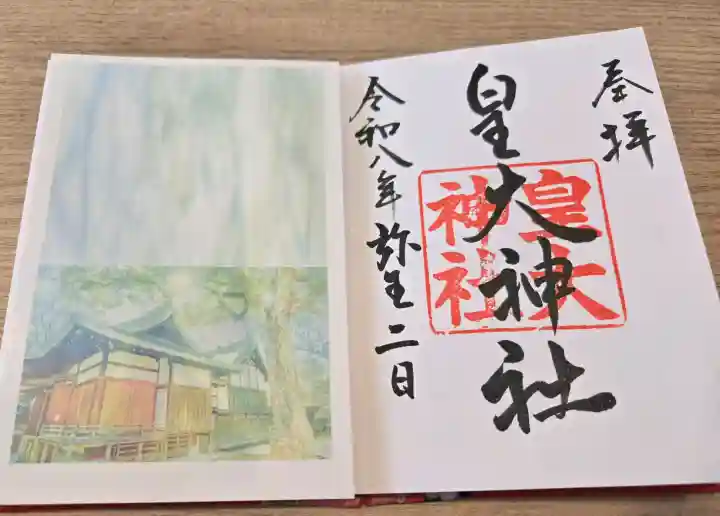 奉拝
皇大神社
皇大
神社
令和八年 弥生 二日